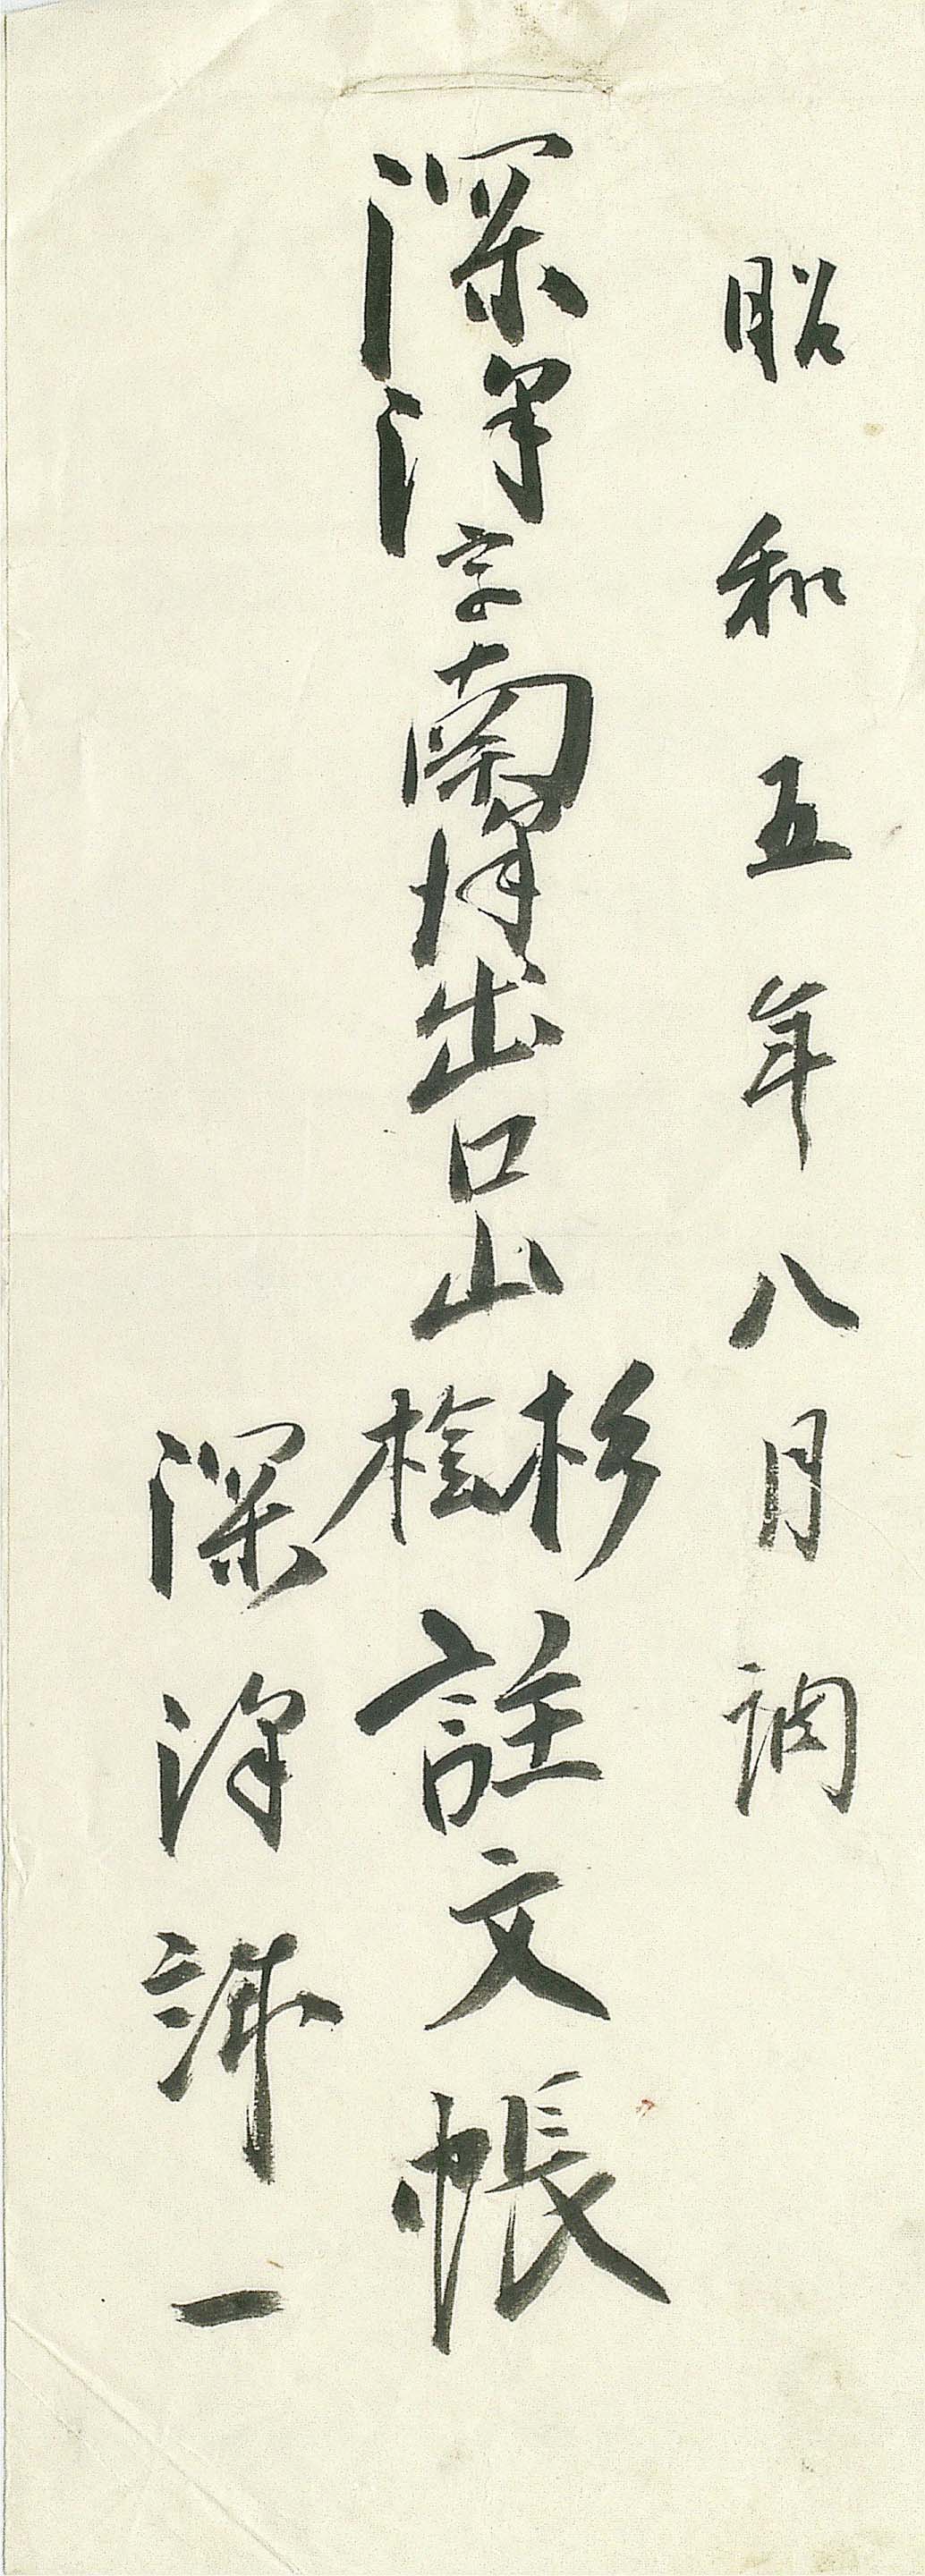 昭和五年八月調
深澤字南澤出口山杉桧註文帳
深澤一